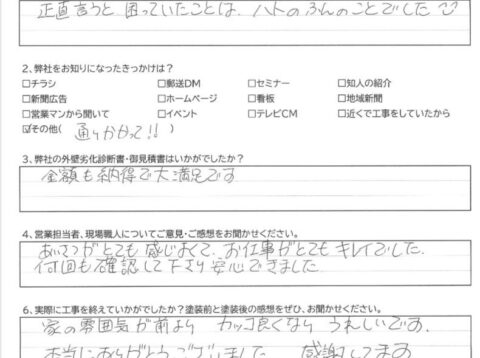 正直言うと 困っていたことは、ハトのふんのことでした
2、弊社をお知りになったきっかけは？
□チラシ □郵送DM □セミナー □知人の紹介
□新聞広告 □ホームページ □看板 □地域新聞
□営業マンから聞いて □イベント □テレビCM □近くで工事をしていたから
☑その他( 通りかかって!! )
3、弊社の外壁劣化診断書・御見積書はいかがでしたか？
金額も納得で大満足です
4、営業担当者、現場職人についてご意見・ご感想をお聞かせください。
あいさつがとても感じよくて、お仕事がとてもキレイでした。
何回も確認して下さり安心できました
6、実際に工事を終えていかがでしたか？塗装前と塗装後の感想をぜひ、お聞かせください。
家の雰囲気が前より カッコ良くなり うれしいです。
本当にありがとうございました 感謝してます